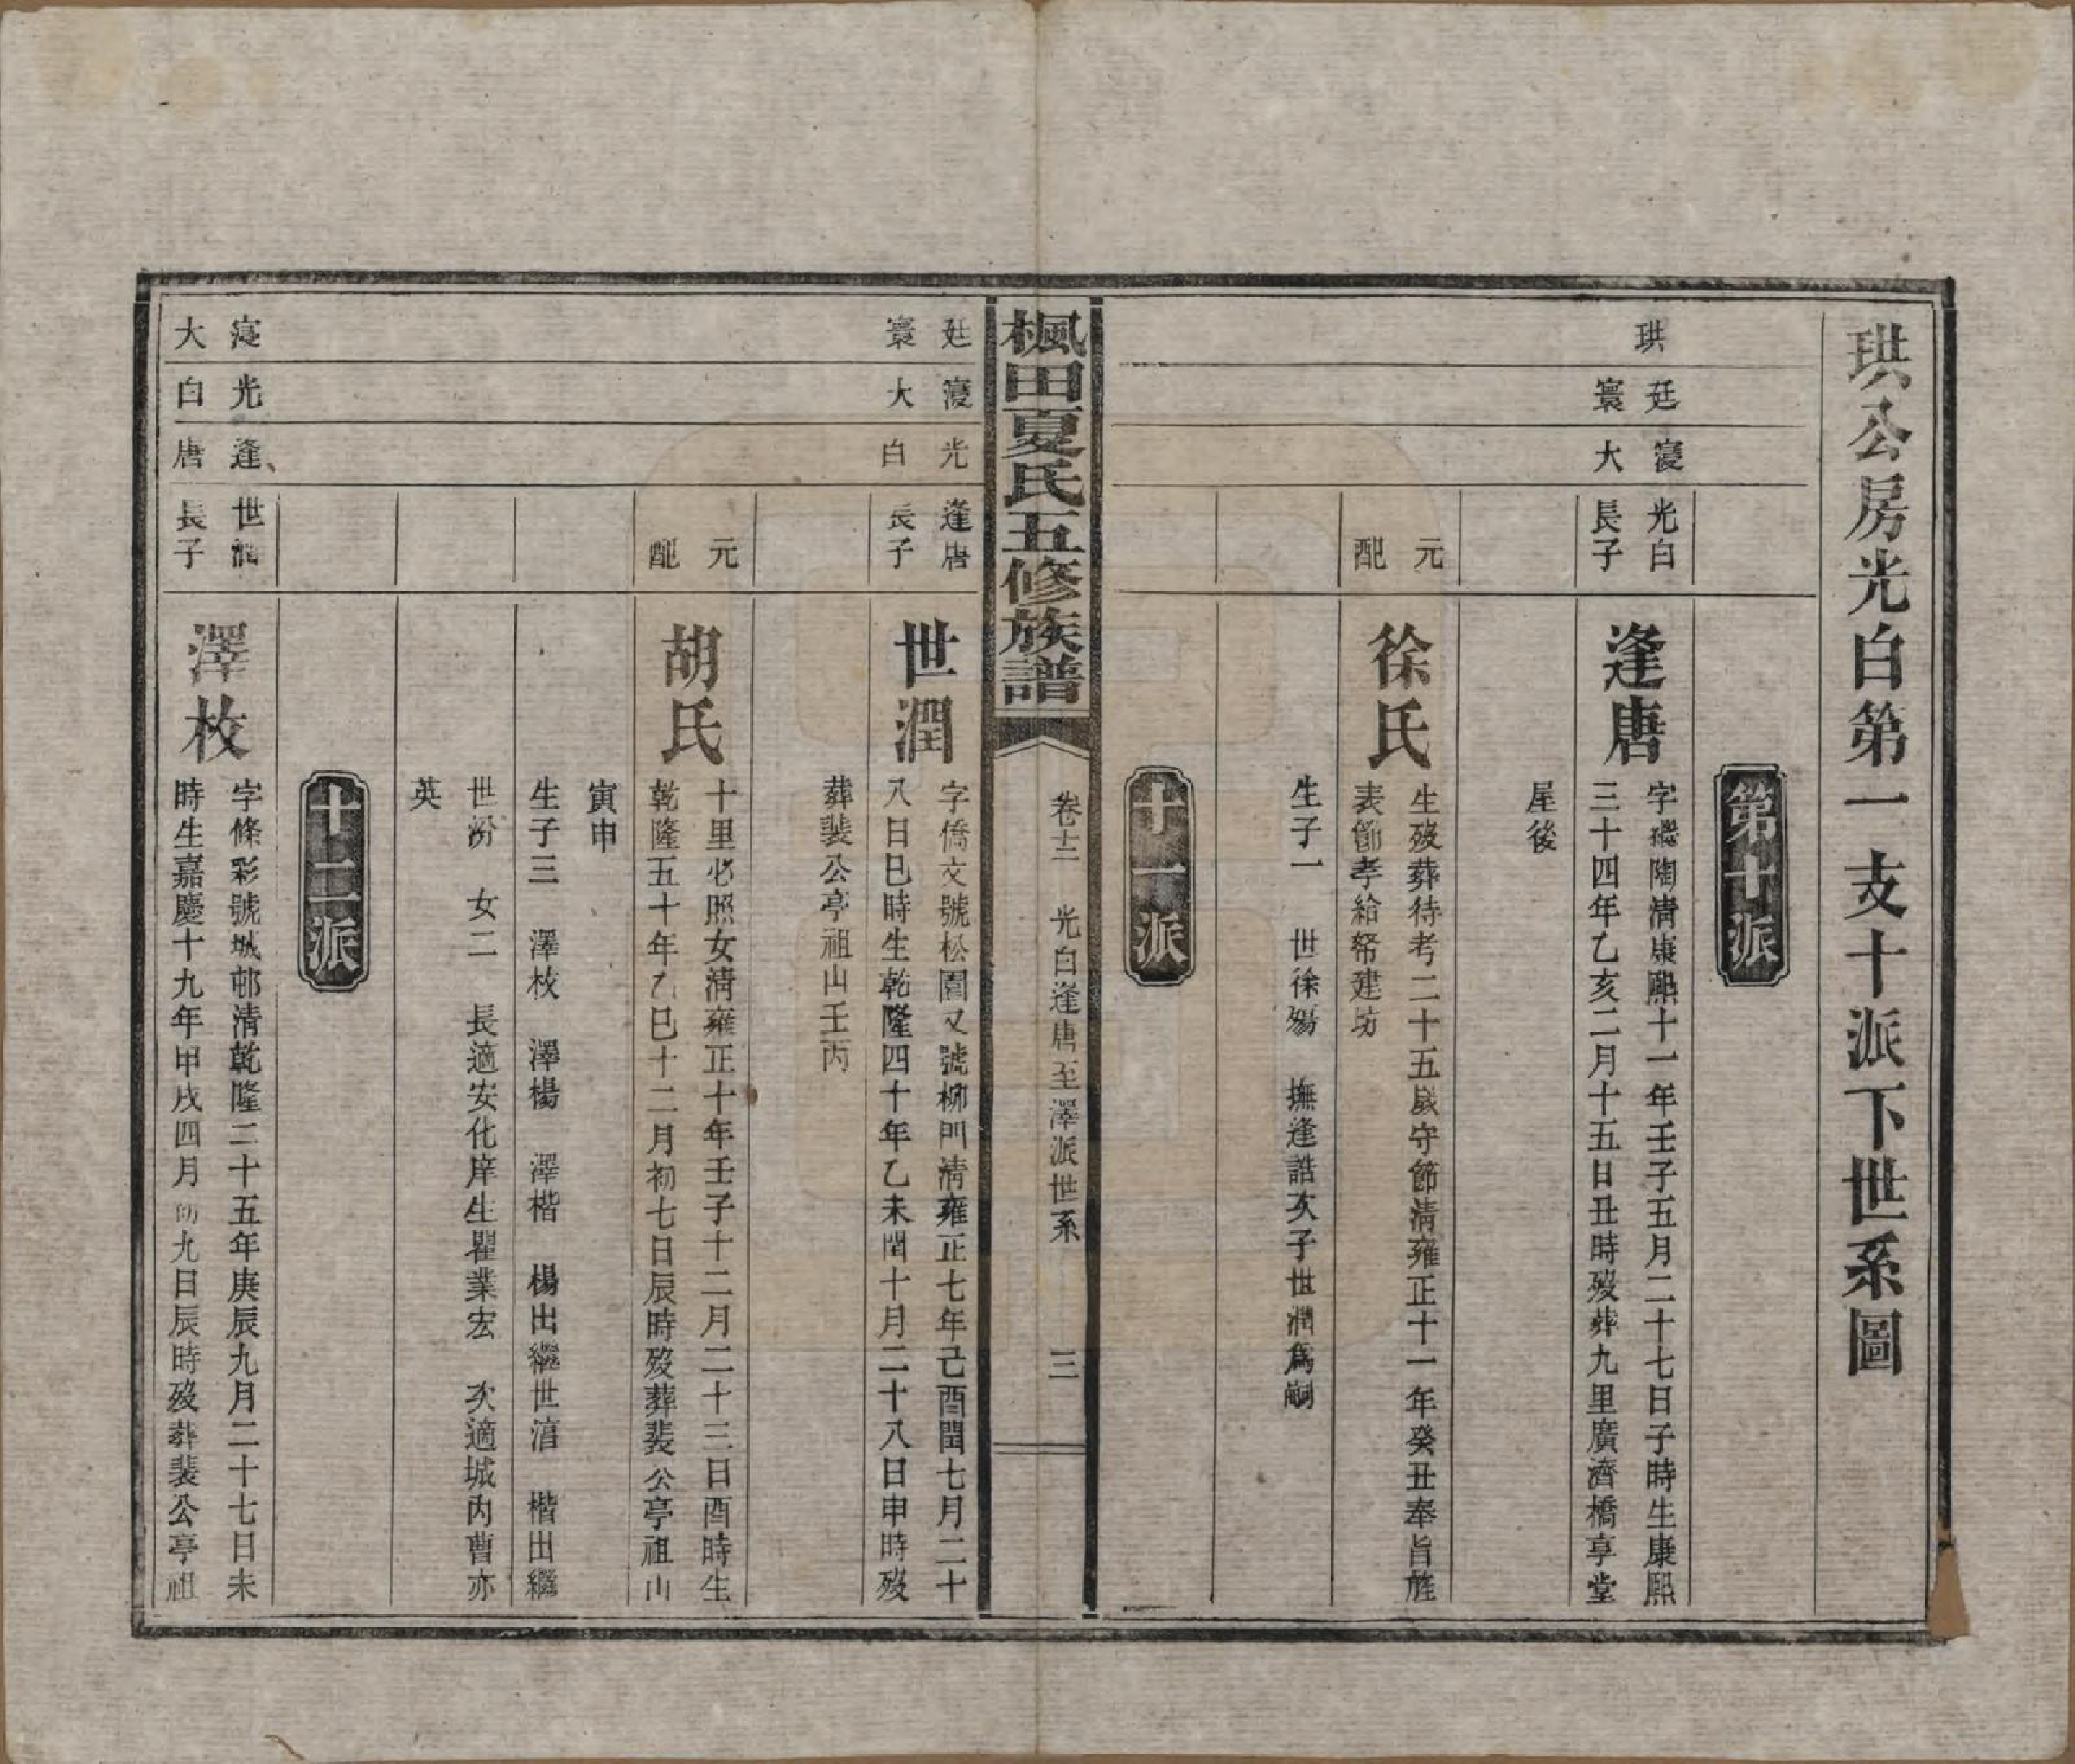 珙公房光白第一支十派下世系圖
第十派
珙
廷寰
寖大
光白長子
逢唐
字礠陶清康熙十一年壬子五月二十七日子時生康熙
三十四年乙亥二月十五日丑時歿葬九里廣濟橋享堂
屋後
元配
徐氏
生歿葬待考二十五歲守節清雍正十一年癸丑奉旨旌
表節孝給帑建坊
生子一 世徐殤 撫逢誥次子世潤爲嗣
十一派
楓田夏氏五修族譜
卷十二 光白逢唐至澤派世系 三
廷寰
寖大
光白
逢唐長子
世潤
字僑文號松園又號柳門清雍正七年己酉閏七月二十
八日巳時生乾隆四十年乙未閏十月二十八日申時歿
葬裴公亭祖山壬丙
元配
胡氏
十里必照女清雍正十年壬子十二月二十三日酉時生
乾隆五十年乙巳十二月初七日辰時歿葬裴公亭祖山
寅申
生子三 澤枚 澤楊 澤楷 楊出繼世湻 楷出繼
世汾 女二 長適安化庠生瞿業宏 次適城內曹亦
英
十二派
寖大
光白
逢唐
世潤長子
澤枚
字條彩號城邨清乾隆二十五年庚辰九月二十七日未
時生嘉慶十九年甲戌四月初九日辰時歿葬裴公亭祖